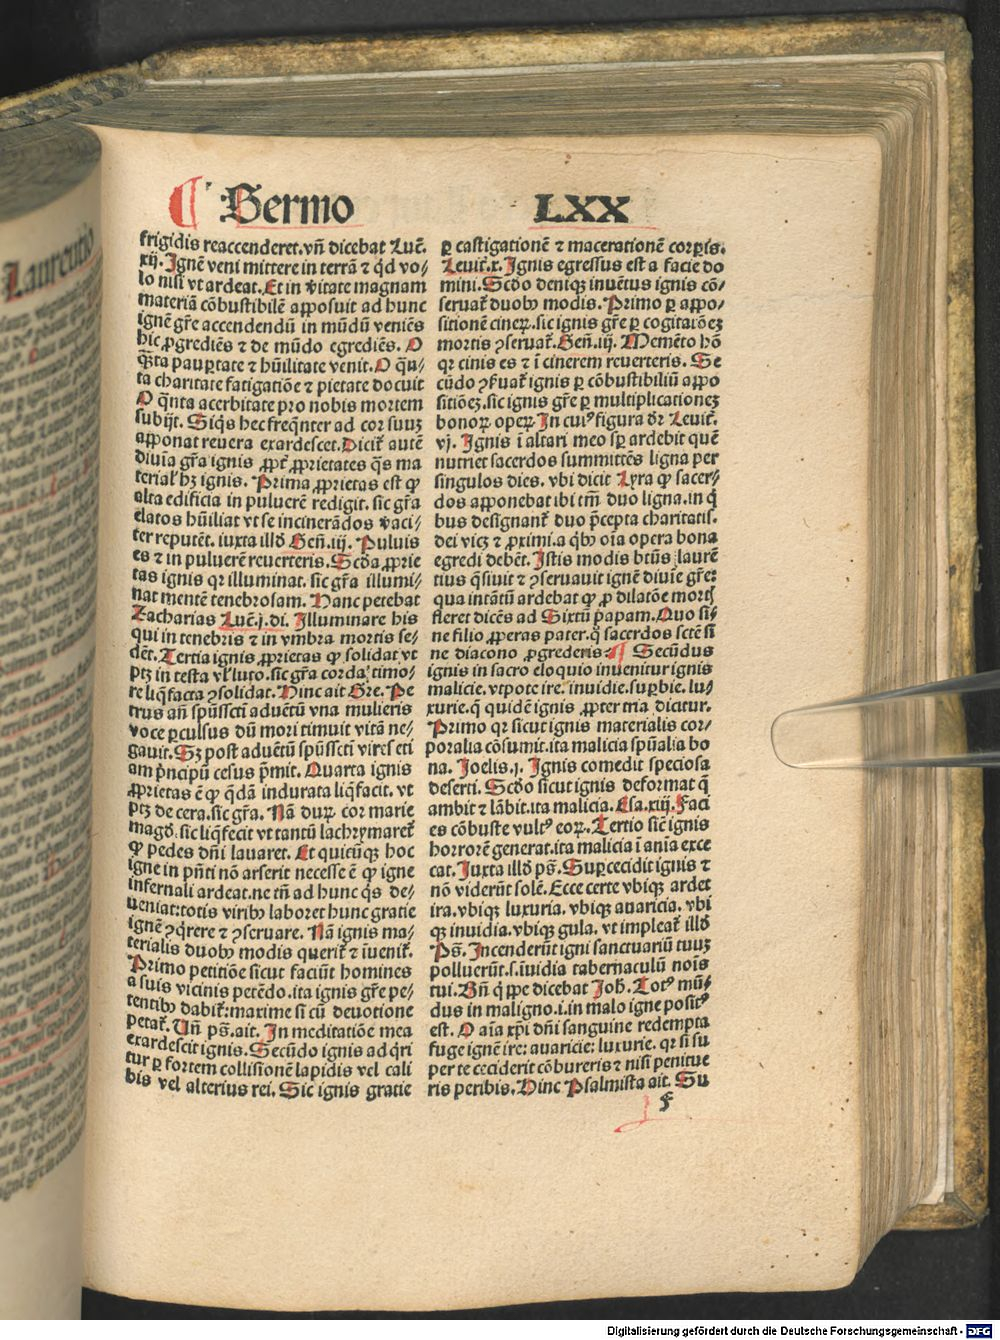 Sermo LXX
frigidis reaccenderet. vñ dicebat Luc̃.
xij. Ignẽ veni mittere in terrã ⁊ q̃d vo⸗
lo nisi vt ardeat. Et in v̓itate magnam
materiã cõbustibilẽ apposuit ad hunc
ignẽ gr̃e accendendũ in mũdũ veniẽs
hic ꝓgrediẽs ⁊ de mũdo egrediẽs. O
q̃ta paupertate ⁊ hũilitate venit. O q̃n⸗
ta charitate fatigatiõe ⁊ pietate docuit
O q̃nta acerbitate pro nobis mortem
subijt. Siq̃s hec freq̃nter ad cor suuꝫ
apponat reuera exardescet. Dicit̃ autẽ
diuĩa gr̃a ignis ꝓpt̃ ꝓprietates q̃s ma
terial̃ hꝫ ignis. Prima ꝓprietas est ꝙ
alta edificia in puluerẽ redigit. sic gr̃a
elatos hũiliat vt se incinerãdos v̓aci⸗
ter reputẽt. iuxta illd̓ Geñ. iij. Puluis
es ⁊ in puluerẽ reuerteris. Scd̓a ꝓprie
tas ignis qr illuminat. sic gr̃a illumi⸗
nat mentẽ tenebrosam. Hanc petebat
Zacharias Luc̃. j. di. Illuminare his
qui in tenebris ⁊ in vmbra mortis se⸗
dẽt. Tertia ignis ꝓprietas ꝙ solidat vt
ptꝫ in testa vl̓ luto. sic gr̃a corda timo⸗
re liq̃facta ꝯsolidat. Hinc ait Gre. Pe
trus añ sp̃ussctĩ aduẽtũ vna mulieris
voce ꝑculsus dũ mori timuit vitã ne⸗
gauit. Sꝫ post aduẽtũ sp̃ussctĩ vires eti
am p̃ncipũ cesus p̃mit. Quarta ignis
ꝓprietas ẽ ꝙ q̃dã indurata liq̃facit. vt
ptꝫ de cera. sic gr̃a. Nã duꝝ cor marie
magd̓. sic liq̃fecit vt tantũ lachrymaret̃
ꝙ pedes dñi lauaret. Et quicũqꝫ hoc
igne in p̃nti nõ arserit necesse ẽ ꝙ igne
infernali ardeat. ne tñ ad hunc q̃s de⸗
ueniat: totis viribꝰ laboret hunc gratie
ignẽ ꝯq̃rere ⁊ ꝯseruare. Nã ignis ma⸗
terialis duobꝰ modis querit̃ ⁊ ĩuenit̃.
Primo petitiõe sicut faciũt homines
a suis vicinis petẽdo. ita ignis gr̃e pe⸗
tentibꝰ dabit̃: maxime si cũ deuotione
petat̃. Vñ ps̃. ait. In meditatiõe mea
exardescit ignis. Secũdo ignis ad q̃ri
tur ꝑ fortem collisionẽ lapidis vel cali
bis vel alterius rei. Sic ignis gratie
ꝑ castigationẽ ⁊ macerationẽ corꝑis.
Leuit̃. x. Ignis egressus est a facie do
mini. Scd̓o deniqꝫ inuẽtus ignis cõ⸗
seruat̃ duobꝰ modis. Primo ꝑ appo⸗
sitionẽ cineꝝ. sic ignis gr̃e ꝑ cogitaiõeꝫ
mortis ꝯseruat̃. Geñ. iij. Memẽto hõ
qr cinis es ⁊ ĩ cinerem reuerteris. Se
cũdo ꝯs̓uat̃ ignis ꝑ cõbustibiliũ appo
sitiõeꝫ. sic ignis gr̃e ꝑ multiplicationeꝫ
bonoꝝ opeꝝ. In cuiꝰ figura dr̃ Leuit̃.
vj. Ignis ĩ altari meo sꝑ ardebit quẽ
nutriet sacerdos summittẽs ligna per
singulos dies. vbi dicit Lyra ꝙ sacer⸗
dos apponebat ibi tm̃ duo ligna. in q̃
bus designant̃ duo p̃cepta charitatis.
dei vicꝫ ⁊ ꝓximi. a qbꝰ oĩa opera bona
egredi debẽt. Istis modis btũs laurẽ
tius q̃siuit ⁊ ꝯseruauit ignẽ diuĩe gr̃e:
qua intãtũ ardebat ꝙ ꝓ dilatõe mortꝭ
fleret dicẽs ad Sixtũ papam. Quo si⸗
ne filio ꝓperas pater. q̃ sacerdos sctẽ si
ne diacono ꝓgrederis. ¶ Secũdus
ignis in sacro eloquio inuenitur ignis
malicie. vtpote ire. inuidie. suꝑbie. lu⸗
xurie. q̃ quidẽ ignis ꝓpter tria dicitur.
Primo qr sicut ignis materialis cor⸗
poralia cõsumit. ita malicia sp̃ualia bo
na. Joelis. j. Ignis comedit speciosa
deserti. Scd̓o sicut ignis deformat q̃
ambit ⁊ lãbit. ita malicia. Esa. xiij. Faci
es cõbuste vultꝰ eoꝝ. Tertio sic̃ ignis
horrorẽ generat. ita malicia ĩ aĩa exce
cat. Juxta illd̓ ps̃. Suꝑcecidit ignis ⁊
nõ viderũt solẽ. Ecce certe vbiqꝫ ardet
ira. vbiqꝫ luxuria. vbiqꝫ auaricia. vbi
qꝫ inuidia. vbiqꝫ gula. vt impleat̃ illd̓
Ps̃. Incenderũt igni sanctuariũ tuuꝫ
polluerũt. s. ĩuidia tabernaculũ nom̃s
tui. Vñ q̃ppe dicebat Joh̃. Totꝰ mũ⸗
dus in maligno. i. in malo igne positꝰ
est. O aĩa xp̃i dñi sanguine redempta
fuge ignẽ ire: auaricie: luxurie. qr si su
per te ceciderit cõbureris ⁊ nisi penitue
ris peribis. Hinc Psalmista ait. Su
f
Laurentio
Digitalisierung gefördert durch die Deutsche Forschungsgemeinschaft - DFG